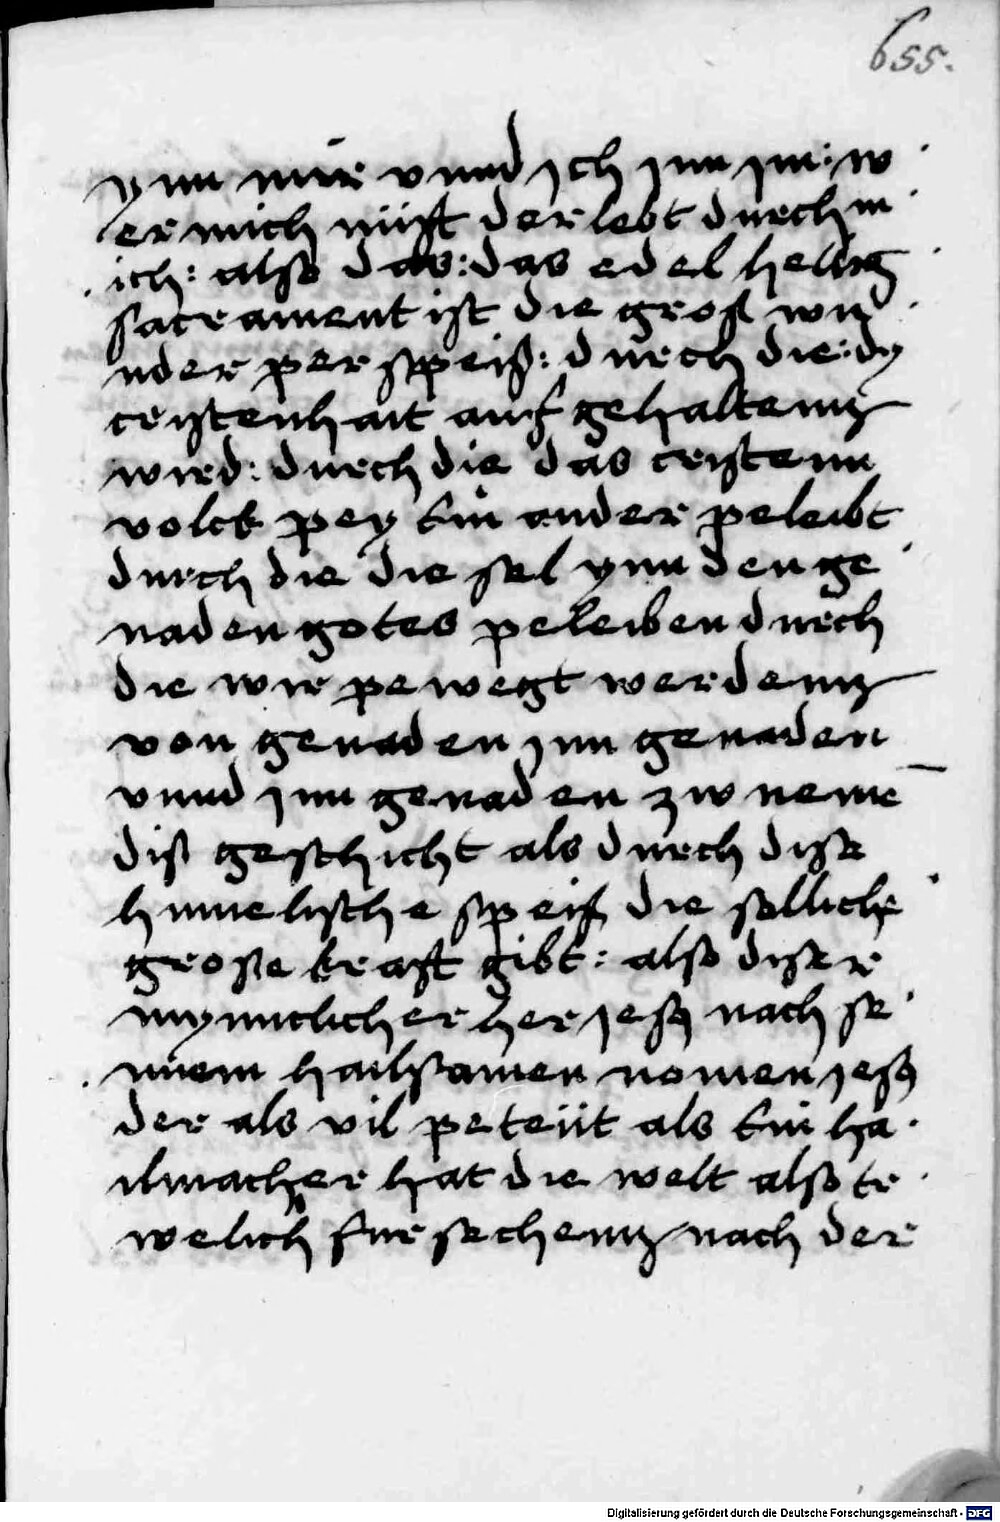 655.
ynn mir vnnd ich jnn jm: w
er mich nüst der lebt durch m
ich: also das: das edel heilig
sacrament ist die gros wu
nder per speiß: durch die: dy
cristenhait auf gehaltenn
wird: durch die das cristenn
volck pey Ein ander peleibt
durch die die sel ynn den ge
naden gotes peleiben durch
die wir pewegt werdenn
von genaden jnn genaden
vnnd jnn genaden zw neme
dis geschicht als durch dise
himelische speis die sollich
grose kraft gibt: also diser
mynnclicher her jesus nach se
inem hailsamen nomen jesus
der als vil peteüt als Ein ha
ilmacher hat die welt also tr
welich fürsechenn nach der
Digitalisierung gefördert durch die Deutsche Forschungsgemeinschaft - DFG